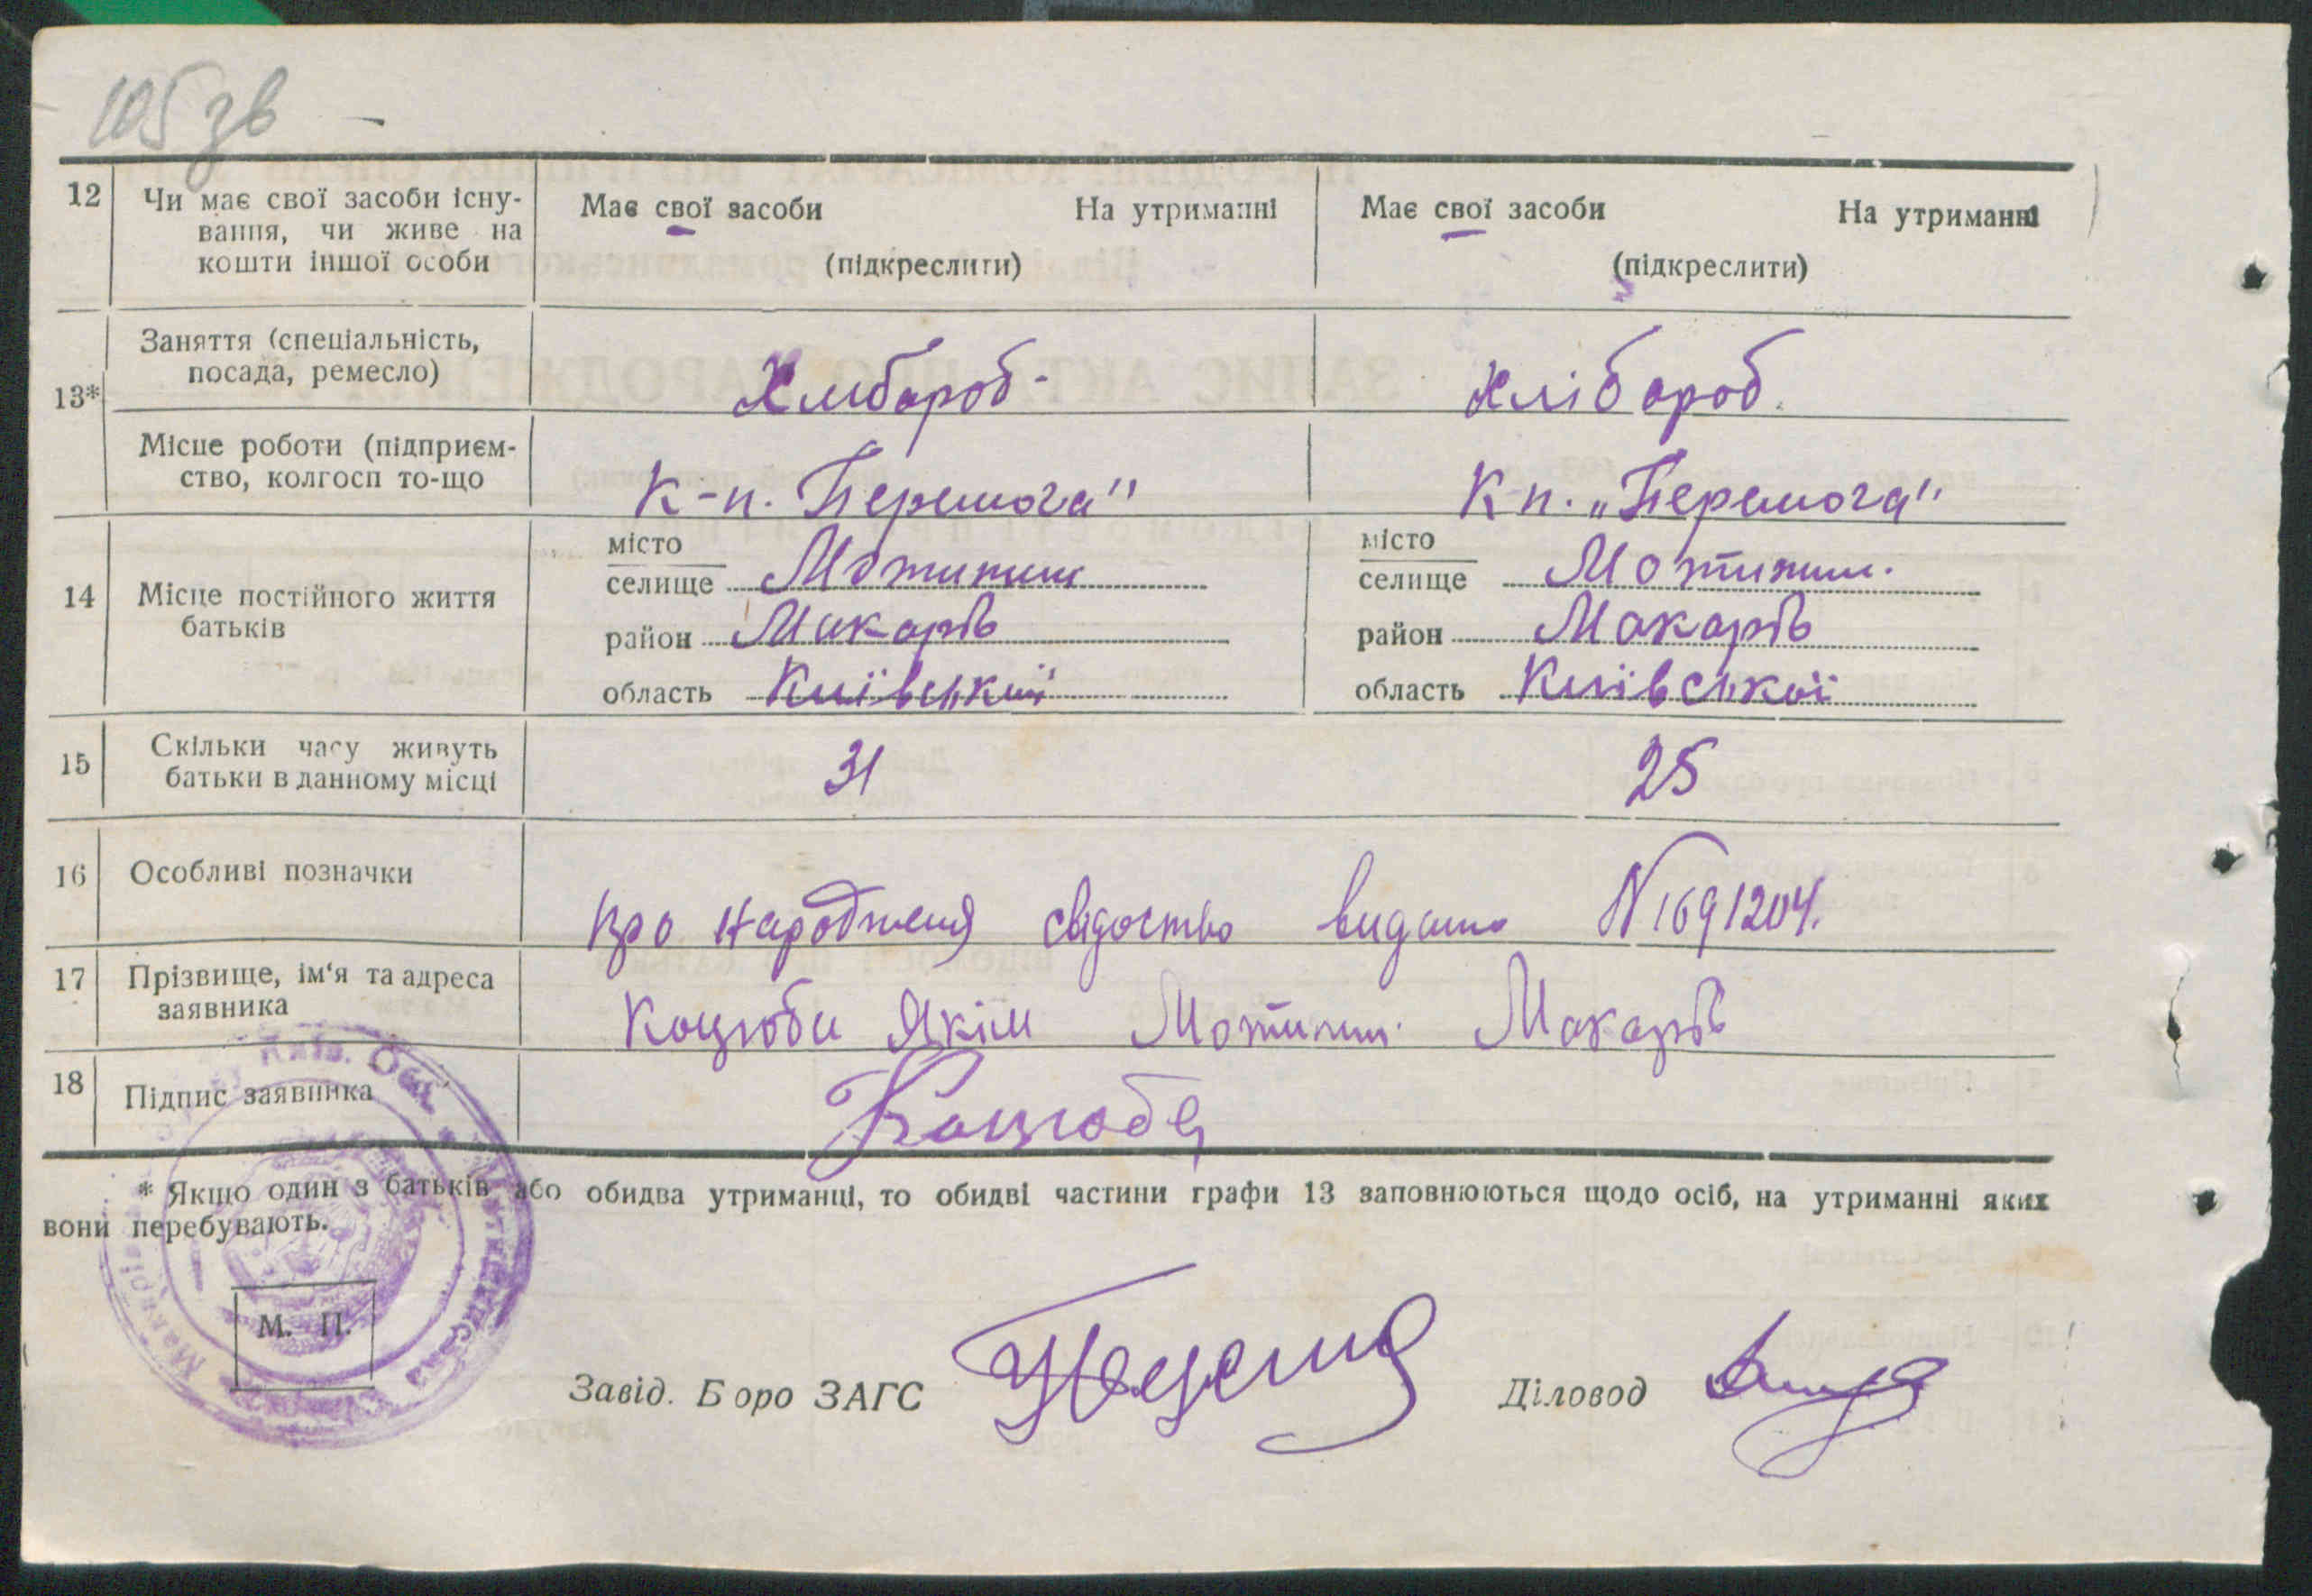 105 зв
12 Чи має свої засоби існу- Має свої засоби На утриманні Має свої засоби На утриманні
вання, чи живе на
кошти іншої особи (підкреслити) (підкреслити)
Заняття (спеціальність,
посада, ремесло) Хлібороб - Хлібороб.
13*
Місце роботи (підприєм-
ство, колгосп то-що К-п. Перемога" Кп. „Перемога"
місто місто
селище Мотижин селище Мотижин.
14 Місце постійного життя
батьків район Макарів район Макарів
область Київської область Київської
15 Скільки часу живуть
батьки в данному місці 31 25
16 Особливі позначки
про народження свідоство видано N 1691204.
17 Прізвище, ім'я та адреса
заявника Коцюби Якім Мотижин. Макарів
18 Підпис заявника Коцюба
* Якщо один з батьків або обидва утриманці, то обидві частини графи 13 заповнюються щодо осіб, на утриманні яких
вони перебувають.
М. П.
Завід. Б оро ЗАГС Діловод